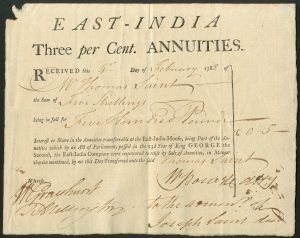 EAST-INDIA
Three per Cent. ANNUITIES.
RECEIVED this 4th Day of February
Mr Thomas Saint
the Sum of Five Shillings
being in full for Five Hundred Pounds
0-5-
Interest or Share in the Annuities transferable at the East-India-House, being Part of the Annuities which by an Act of Parliament, passed in the 23d Year of King GEORGE the Second, the East-India Company were impowered to raise by Sale of Annuities, in Manner
they mentioned, by me this Day Transferred unto the said
Thomas Saint
Witness
to the
Joseph Saint